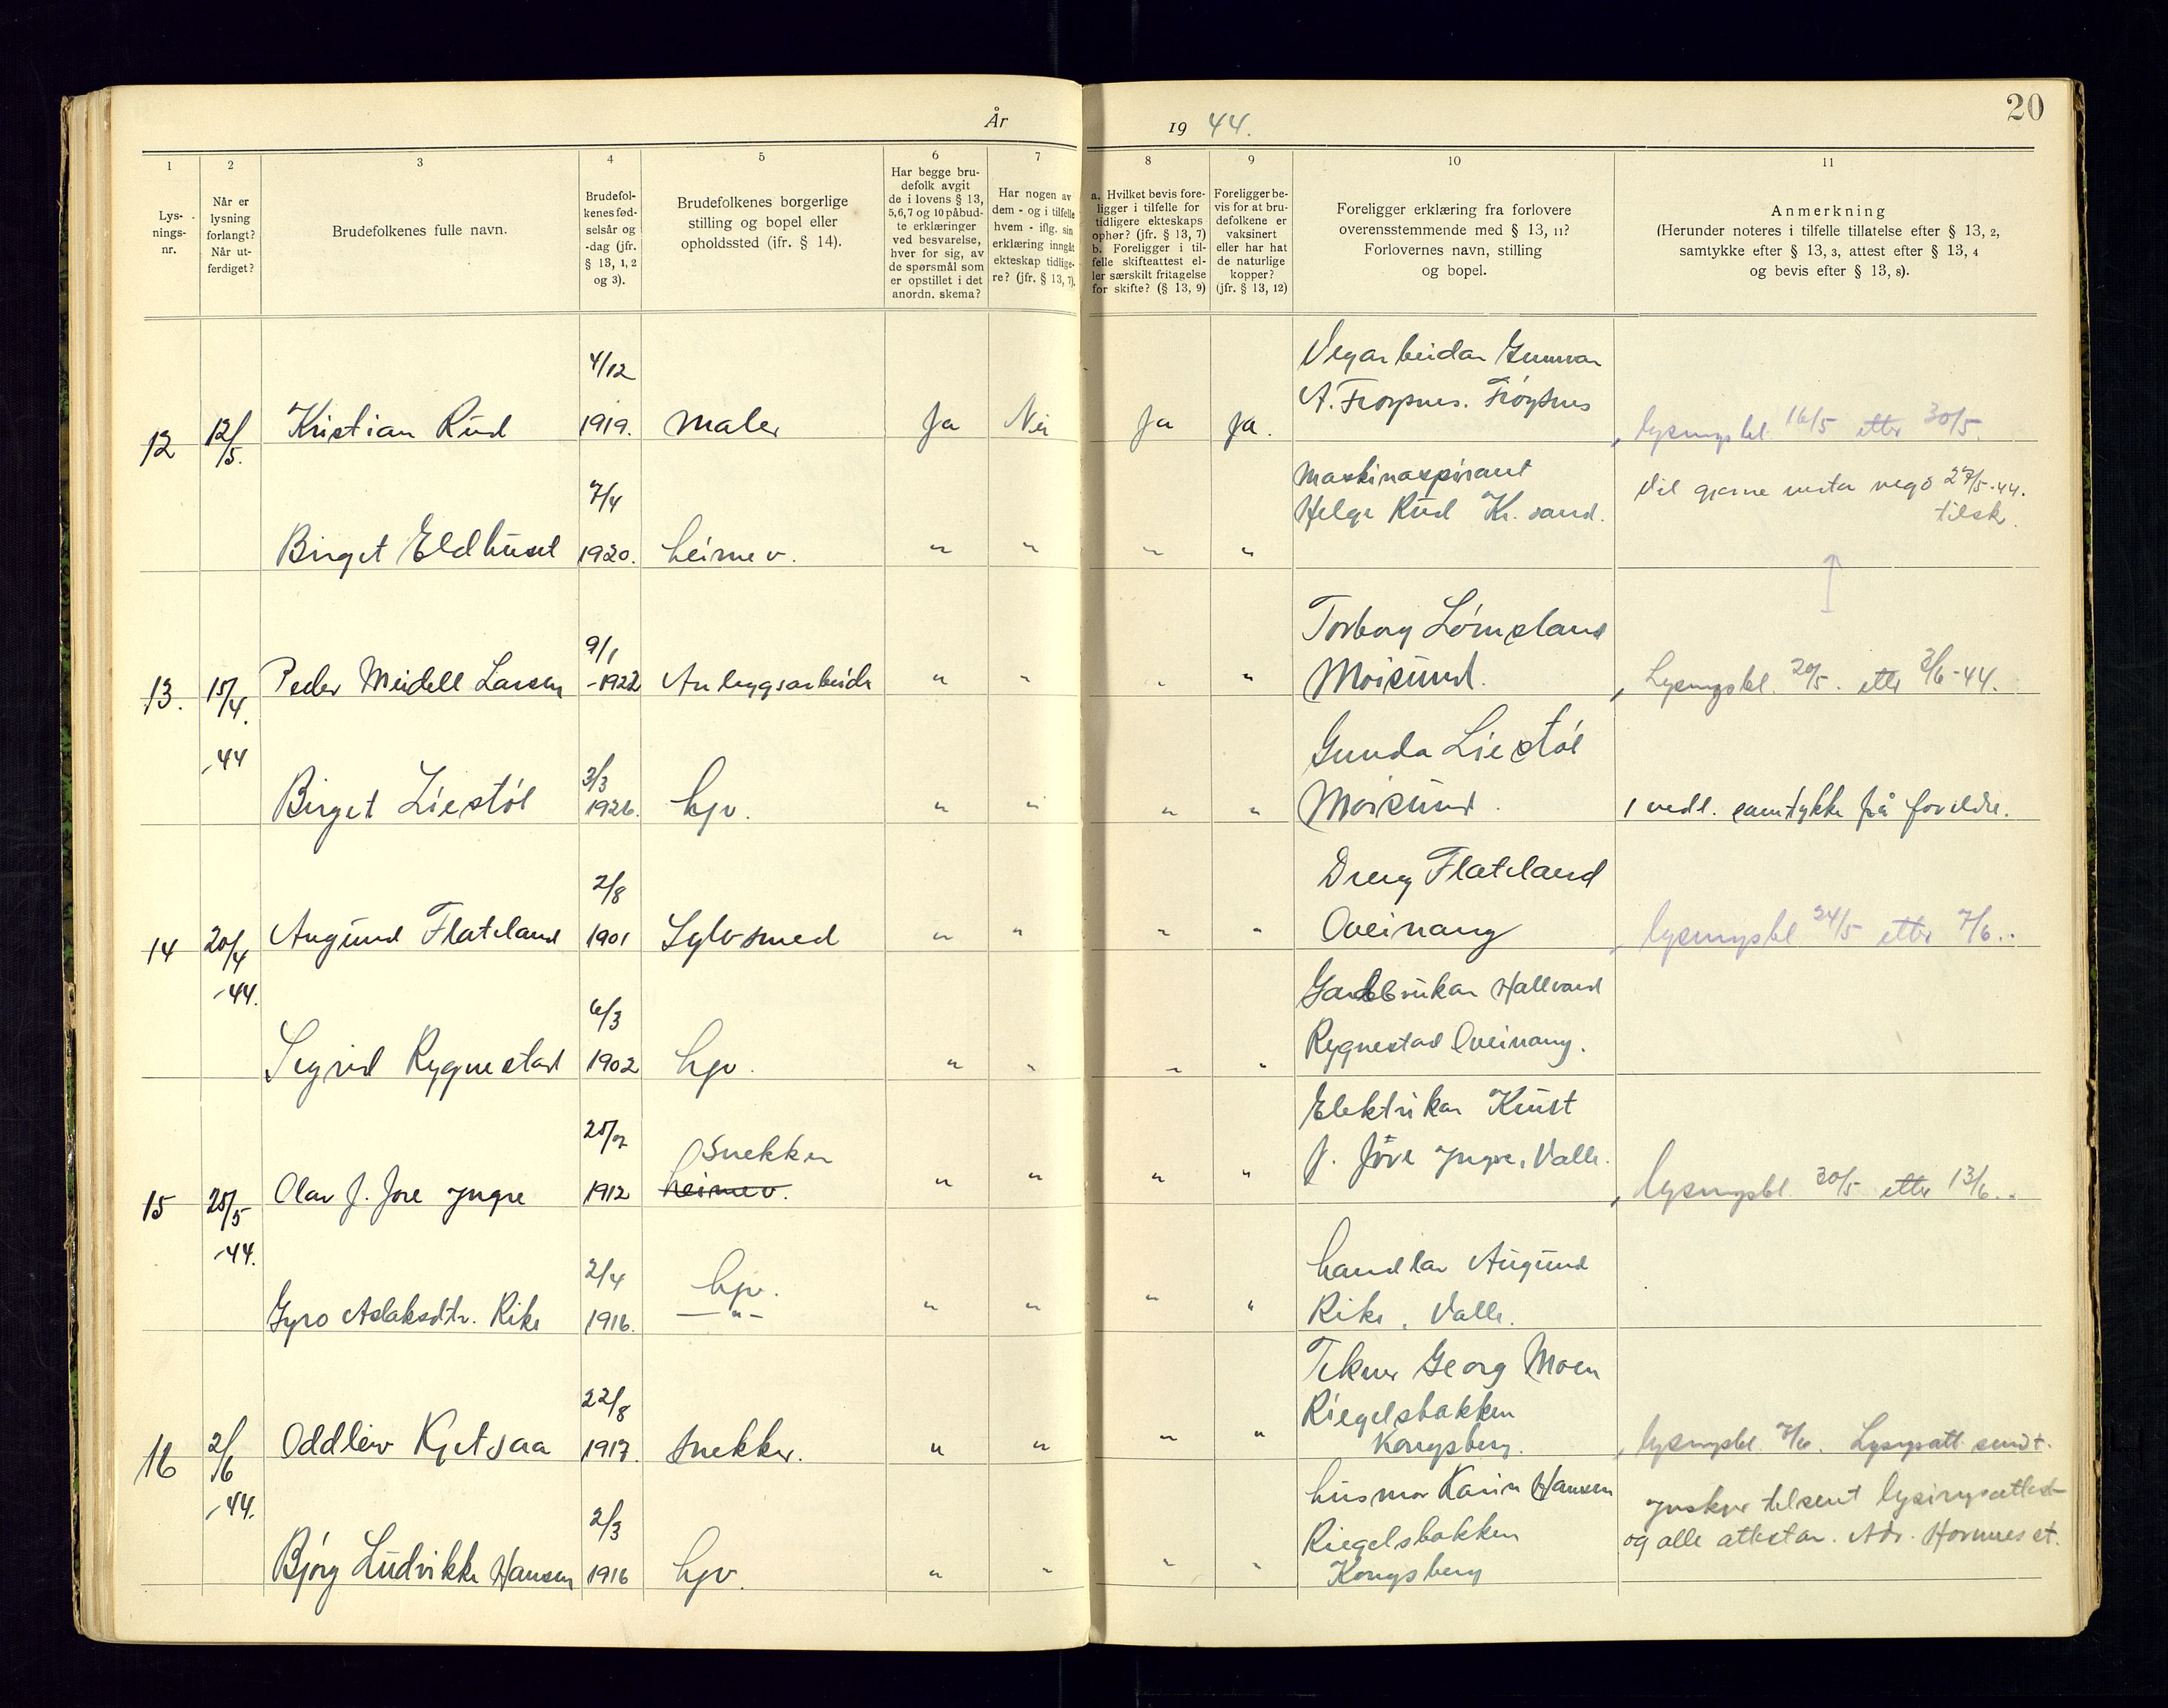 År 1944.
20
1
2
3
4
5
6
7
8
9
10
11
Lys-
nings-
nr.
Når er
lysning
forlangt?
Når ut-
ferdiget?
Brudefolkenes fulle navn.
Brudefol-
kenes fød-
selsår og
-dag (jfr.
§ 13, 1, 2
og 3).
Brudefolkenes borgerlige
stilling og bopel eller
opholdssted (jfr. § 14).
Har begge bru-
defolk avgit
de i lovens § 13,
5, 6, 7 og 10 påbud-
te erklæringer
ved besvarelse,
hver for sig, av
de spørsmål som
er opstillet i det
anordn. skema?
Har nogen av
dem - og i tilfelle
hvem - iflg. sin
erklæring inngått
ekteskap tidlige-
re? (jfr. § 13, 7).
a. Hvilket bevis fore-
ligger i tilfelle for
tidligere ekteskaps
ophør? (jfr. § 13, 7)
b. Foreligger i til-
felle skifteattest el-
ler særskilt fritagelse
for skifte? (§ 13, 9)
Foreligger be-
vis for at bru-
defolkene er
vaksinert
eller har hat
de naturlige
kopper?
(jfr. § 13, 12)
Foreligger erklæring fra forlovere
overensstemmende med § 13, 11?
Forlovernes navn, stilling
og bopel.
Anmerkning
(Herunder noteres i tilfelle tillatelse efter § 13, 2,
samtykke efter § 13, 3, attest efter § 13, 4
og bevis efter § 13, 8).
12 12/5. Kristian Rud 4/12 1919. Maler Ja Nei Ja Ja.
Vegarbeidar Gunnar
A. Frøysnes. Frøysnes
lysingsbl. 16/5 etter 30/5.
Birget Eldhuset 7/4 1920. heimev. " " " "
Maskinaspirant
Helge Rud Kr. sand.
Vil gjerne 27/5-44.
tilsk.
13. 15/4. -44 Peder Meidell Larsen 9/1 -1922 Anleggsarbeidr " " " "
Torborg Lømsland
Moisund.
Lysingsbl. 20/5. ettr 3/6-44.
Birget Liestøl 3/3 1926. hjv. " " " "
Gunda Liestøl
Moisund.
1 vedl. samtykke frå foreldre.
14 20/4 -44. Augund Flateland 2/8 1901 Sylvsmed " " " "
Dreng Flateland
Oveinang
lysingsbl 24/5 etter 7/6..
Sigrid Rygnestad 6/3 1902 hjv. " " " "
Gardbrukar Hallvard
Rygnestad Oveinang.
15 25/5 -44. Olav J. Jore Yngre 25/2 1912 Snekker
heimev. " " " "
Elektrikar Knut
J. Jore Yngre, Valle.
lysingsbl. 30/5 etter 13/6..
Gyro Aslaksdtr. Rike 2/4 1916. hjv.
— " — " " " "
handlar Augund
Rike, Valle.
16 2/6 -44. Oddleiv Kjetsaa 22/8 1917. Snekker. " " " "
Tekner Georg Moen
Riegelsbakken
Kongsberg.
lysingsbl. 7/6. Lysingsatt. sendt.
Bjørg Ludvikke Hansen 2/3 1916 hjv. " " " "
husmor Karin Hansen
Riegelsbakken
Kongsberg
ynskjer tilsent lysingsattest
og alle attestar. Adr. Hornnes st.